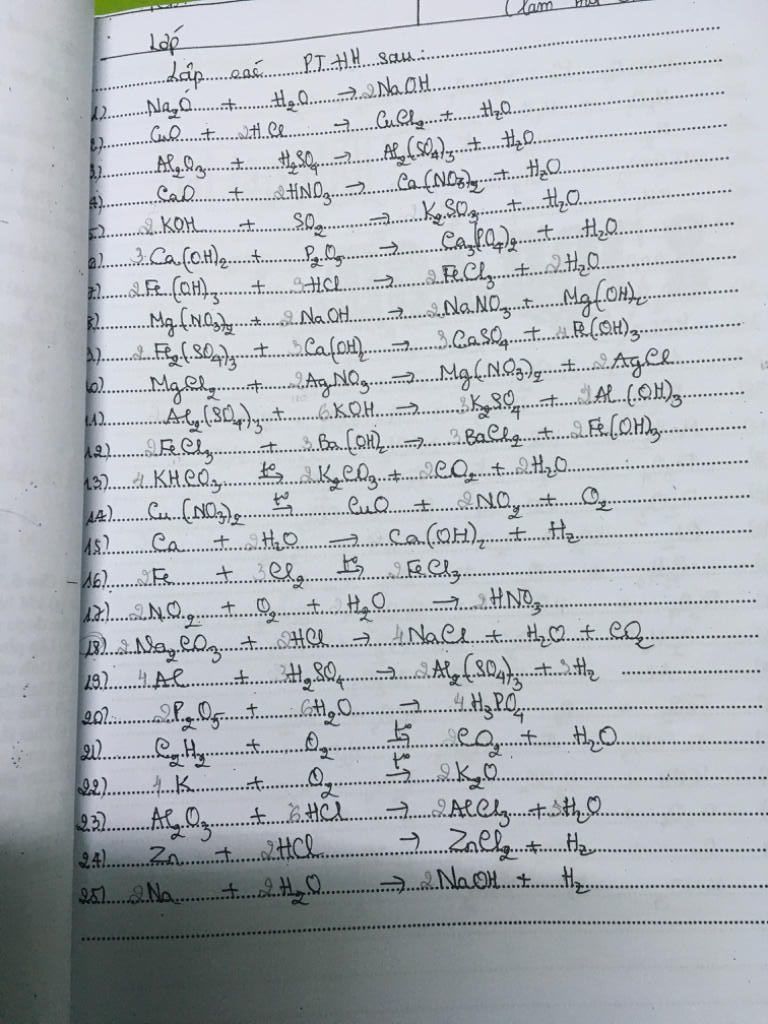 (Làm
Lớp
Lập các PTHH sau:
1) Na₂O + H₂O → 2NaOH
2) CuO + 2HCl → CuCl₂ + H₂O
3) Al₂O₃ + H₂SO₄ → Al₂(SO₄)₃ + H₂O
4) CaO + 2HNO₃ → Ca(NO₃)₂ + H₂O
5) 2KOH + SO₂ → K₂SO₃ + H₂O
6) 3Ca(OH)₂ + P₂O₅ → Ca₃(PO₄)₂ + H₂O
7) 2Fe(OH)₃ + 3HCl → 2FeCl₃ + 2H₂O
8) Mg(NO₃)₂ + 2NaOH → 2NaNO₃ + Mg(OH)₂
9) 2Fe₂(SO₄)₃ + 3Ca(OH)₂ → 3CaSO₄ + 4Fe(OH)₃
10) MgCl₂ + 2AgNO₃ → Mg(NO₃)₂ + 2AgCl
11) Al₂(SO₄)₃ + 6KOH → 3K₂SO₄ + 2Al(OH)₃
12) 2FeCl₃ + 3Ba(OH)₂ → 3BaCl₂ + 2Fe(OH)₃
13) 4KHCO₃ t°→ 2K₂CO₃ + 2CO₂ + 2H₂O
14) Cu(NO₃)₂ t°→ CuO + 2NO₂ + O₂
15) Ca + 2H₂O → Ca(OH)₂ + H₂
16) 2Fe + 3Cl₂ t°→ 2FeCl₃
17) 2NO₂ + O₂ + 2H₂O → 2HNO₃
18) 2Na₂CO₃ + 2HCl → 4NaCl + H₂O + CO₂
19) 4Al + 3H₂SO₄ → 2Al₂(SO₄)₃ + 3H₂
20) 2P₂O₅ + 6H₂O → 4H₃PO₄
21) C₂H₂ + O₂ t°→ 2CO₂ + H₂O
22) 4K + O₂ t°→ 2K₂O
23) Al₂O₃ + 6HCl → 2AlCl₃ + 3H₂O
24) Zn + 2HCl → ZnCl₂ + H₂
25) 2Na + 2H₂O → 2NaOH + H₂